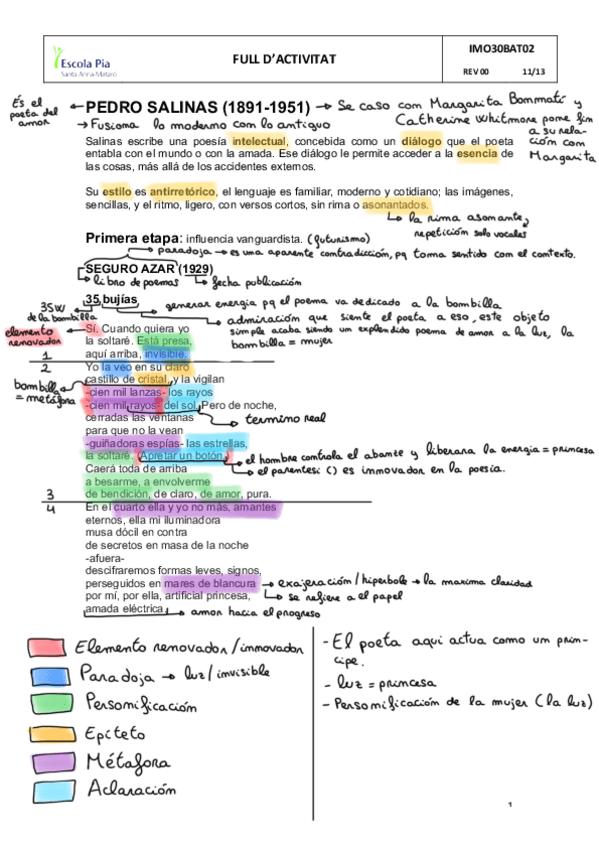 Escola Pia
Santa Anna-Mataró
FULL D'ACTIVITAT
IMO30BAT02
REV 00 11/13
És el
poeta del
amor
PEDRO SALINAS (1891-1951) → Se caso con Margarita Bonmatí y
Catherine Whitmore pone fin
a su rela-
ción con
Margarita
→ Fusiona lo moderno con lo antiguo
Salinas escribe una poesía intelectual, concebida como un diálogo que el poeta
entabla con el mundo o con la amada. Ese diálogo le permite acceder a la esencia de
las cosas, más allá de los accidentes externos.
Su estilo es antirretórico, el lenguaje es familiar, moderno y cotidiano; las imágenes,
sencillas, y el ritmo, ligero, con versos cortos, sin rima o asonantados.
↳ la rima asonante,
repetición solo vocales
Primera etapa: influencia vanguardista. (futurismo)
paradoja → es una aparente contradicción, pq toma sentido con el contexto.
SEGURO AZAR (1929)
↳ libro de poemas ↳ fecha publicación
35 bujías
35W
de la bombilla
generar energia pq el poema va dedicado a la bombilla
admiración que siente el poeta a eso, este objeto
simple acaba siendo un explendido poema de amor a la luz, la
bombilla = mujer
elemento
renovador
Sí. Cuando quiera yo
la soltaré. Está presa,
aquí arriba, invisible.
1
2
Yo la veo en su claro
castillo de cristal, y la vigilan
bombilla
= metáfora
-cien mil lanzas- los rayos
-cien mil rayos- del sol. Pero de noche,
cerradas las ventanas
→ termino real
para que no la vean
-guiñadoras espías- las estrellas,
la soltaré. (Apretar un botón.)
↳ el hombre controla el abance y liberara la energia = princesa
↳ el parentesi () es innovador en la poesia.
Caerá toda de arriba
a besarme, a envolverme
de bendición, de claro, de amor, pura.
3
4
En el cuarto ella y yo no más, amantes
eternos, ella mi iluminadora
musa dócil en contra
de secretos en masa de la noche
-afuera-
descifraremos formas leves, signos,
perseguidos en mares de blancura → exajeración/hiperbole → la maxima claridad
por mí, por ella, artificial princesa,
↳ se refiere a el papel
amada eléctrica. → amor hacia el progreso
Elemento renovador/innovador
Paradoja → luz/invisible
Personificación
Epíteto
Métafora
Aclaración
- El poeta aqui actua como un prin-
cipe.
- luz = princesa
- Personificación de la mujer (la luz)
1